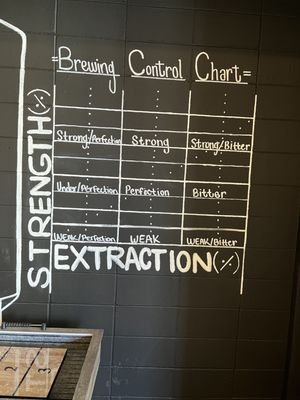 =Brewing Control Chart=
STRENGTH(%)
Strong/Perfection Strong Strong/Bitter
Under/Perfection Perfection Bitter
WEAK/Perfection WEAK WEAK/Bitter
EXTRACTION(%)
2 3